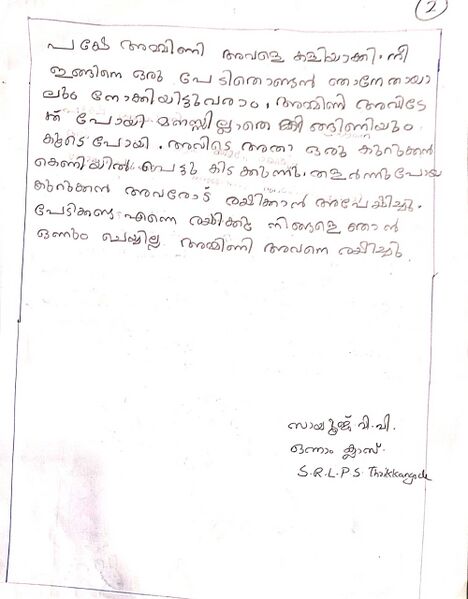 2
പക്ഷേ അമ്മിണി അവളെ കളിയാക്കി. നീ
ഇങ്ങിനെ ഒരു പേടിതൊണ്ടൻ ഞാനേതായാ
ലും നോക്കിയിട്ടുവരാം, അമ്മിണി അവിടേ
ക്ക് പോയി മനസ്സില്ലാതെ കിങ്ങിണിയും
കൂടെ പോയി. അവിടെ അതാ ഒരു കുറുക്കൻ
കെണിയിൽ പെട്ടു കിടക്കുന്നു. തളർന്നുപോയ
കുറുക്കൻ അവരോട് രക്ഷിക്കാൻ അപേക്ഷിച്ചു.
പേടിക്കണ്ട എന്നെ രക്ഷിക്കൂ നിങ്ങളെ ഞാൻ
ഒന്നും ചെയ്യില്ല. അമ്മിണി അവനെ രക്ഷിച്ചു.
സായൂജ് വി.വി.
ഒന്നാം ക്ലാസ്.
S.R.L.P.S. Thaikkangade